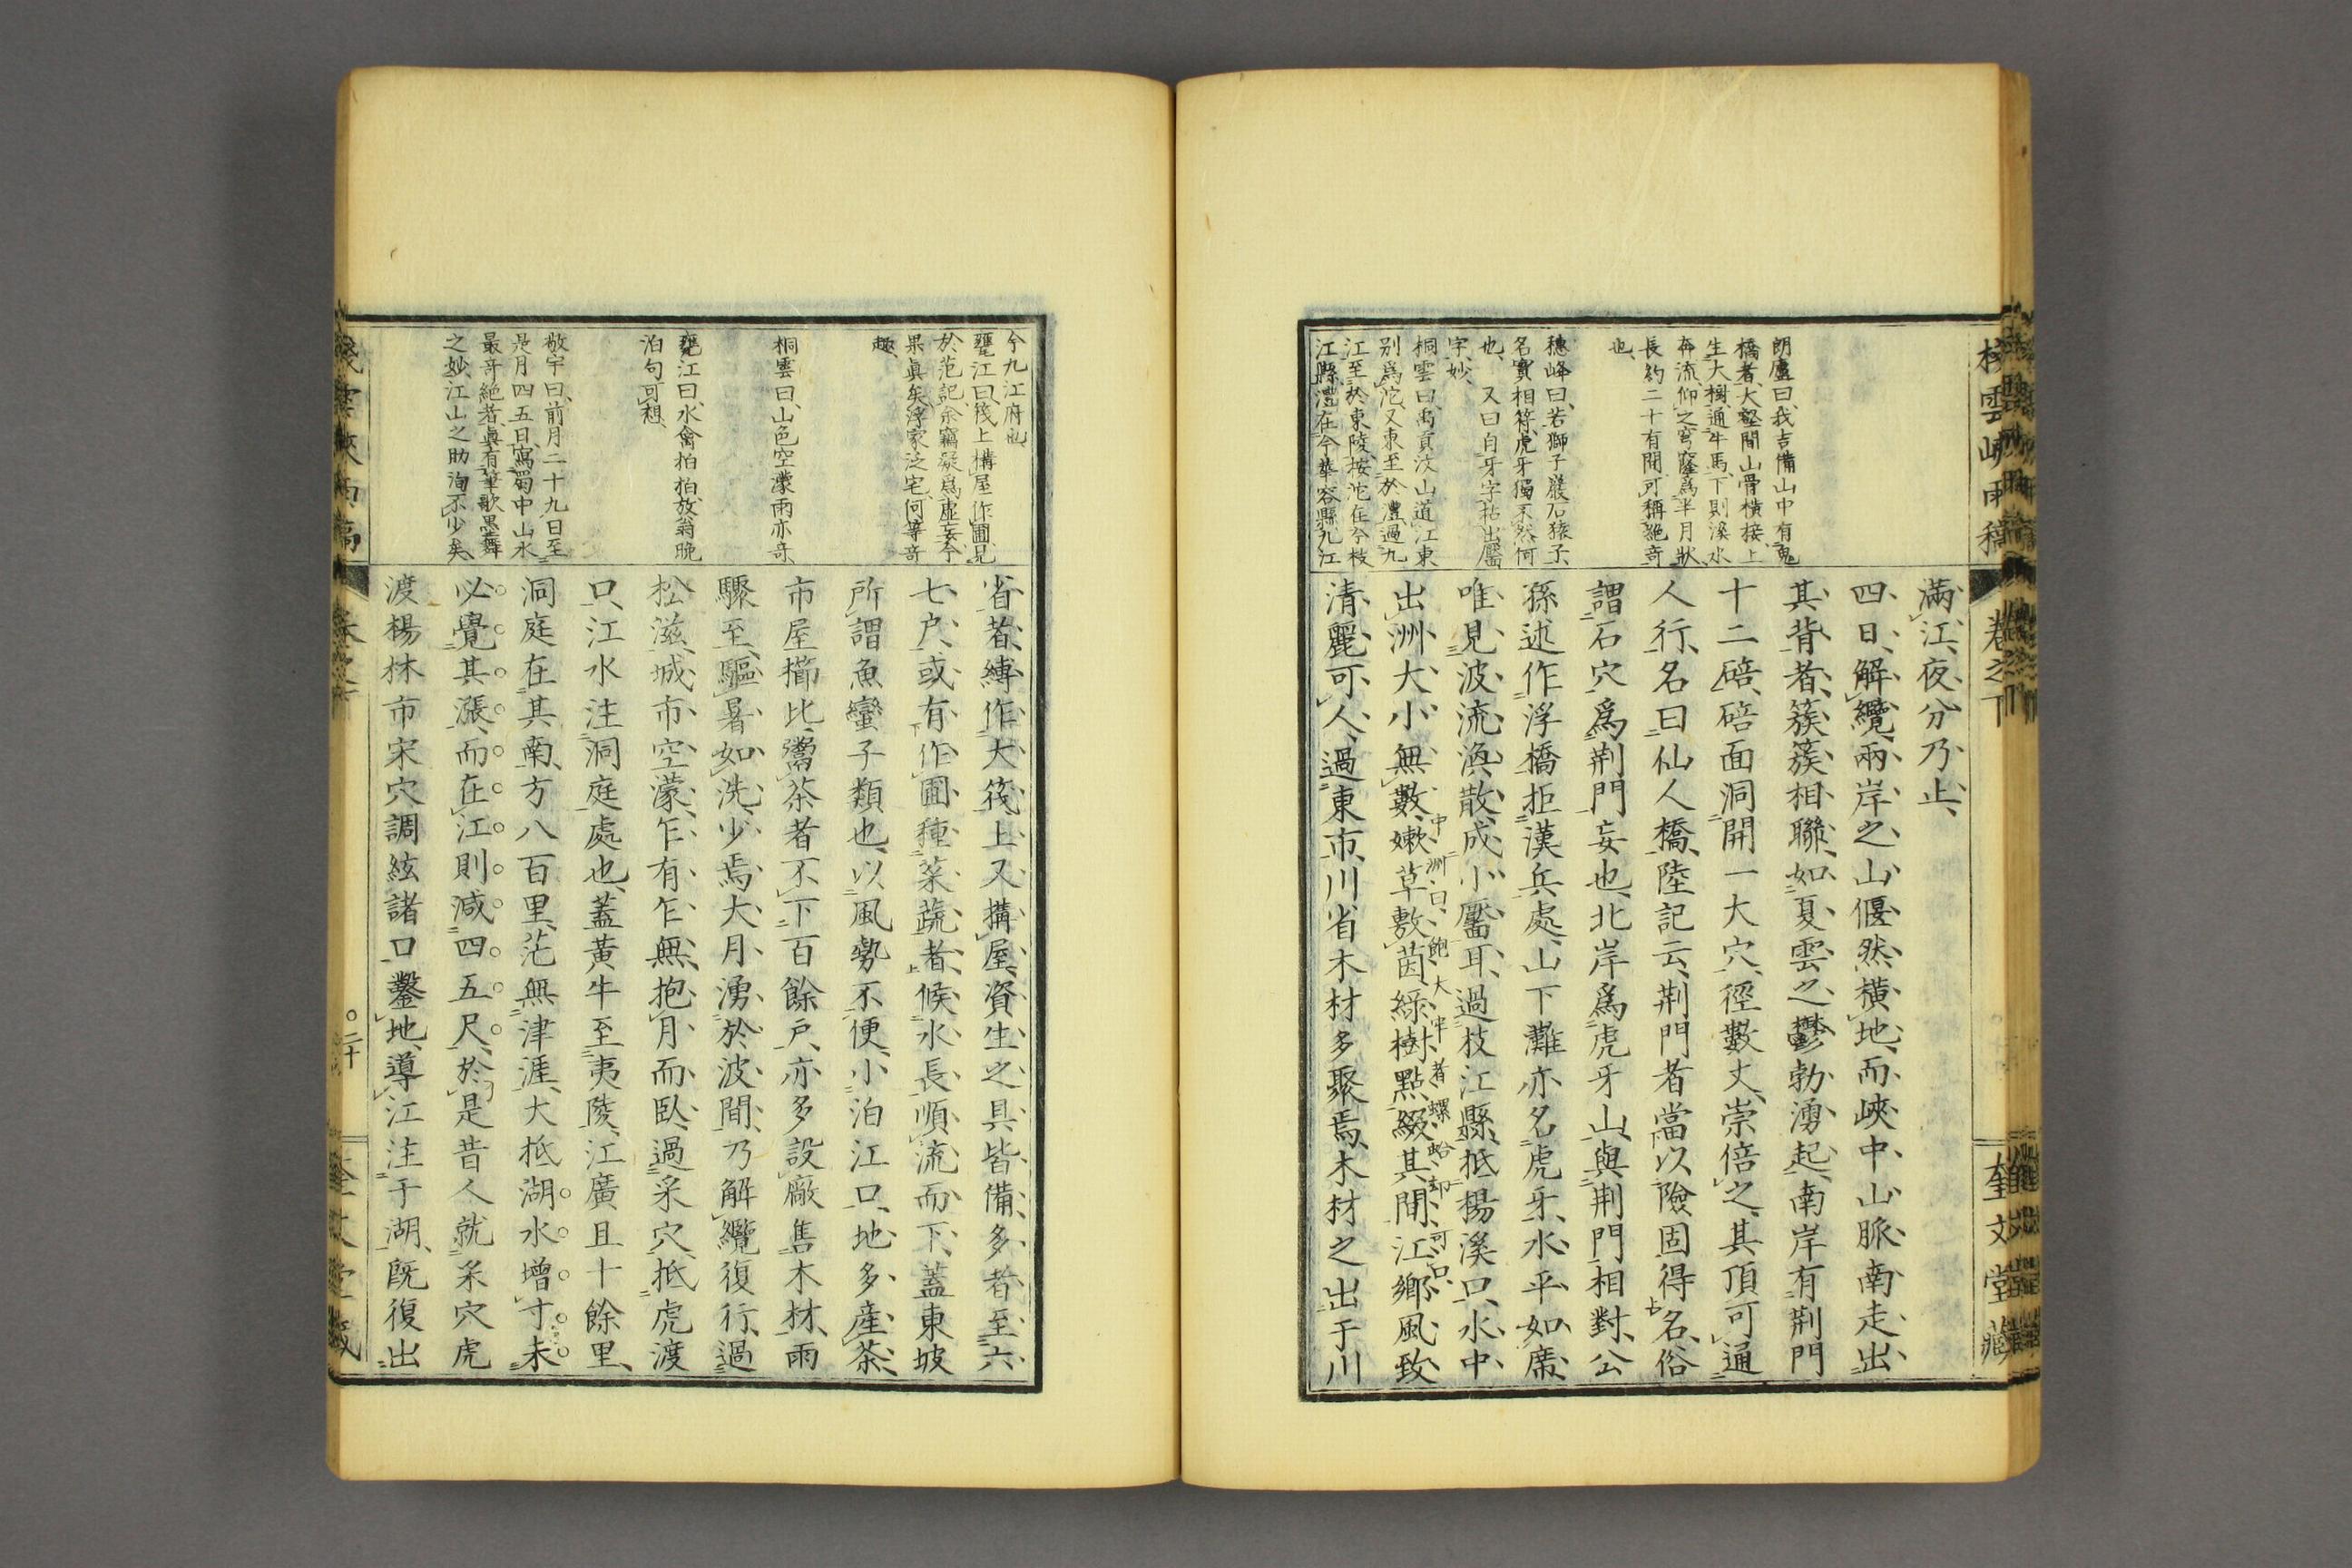 棧雲峽雨稿
卷之下
奎文堂藏
朗廬曰我吉備山中有鬼
橋者大壑間山骨橫接上
生大樹通牛馬下則溪水
奔流仰之穹窿爲半月狀
長約二十有間可稱絕奇
也
穗峰曰若獅子巖石猿子
名實相符虎牙獨不然何
也 又曰自牙字拈出靨
字妙
桐雲曰禹貢汶山道江東
別爲沱又東至於澧過九
江至於東陵按沱在今枝
江縣澧在今華容縣九江
滿江夜分乃止
四日解纜兩岸之山偃然橫地而峽中山脈南走出
其背者簇簇相聯如夏雲之鬱勃湧起南岸有荆門
十二碚碚面洞開一大穴徑數丈崇倍之其頂可通
人行名曰仙人橋陸記云荆門者當以險固得名俗
謂石穴爲荆門妄也北岸爲虎牙山與荆門相對公
孫述作浮橋拒漢兵處山下灘亦名虎牙水平如席
唯見波流渙散成小靨耳過枝江縣抵楊溪口水中
出洲大小無數嫩草敷茵綠樹點綴其間江鄉風致
清麗可人過東市川省木材多聚焉木材之出于川
今九江府也
甕江曰筏上構屋作圃見
於范記余竊疑爲虛妄今
果眞矣浮家泛宅何等奇
趣
桐雲曰山色空濛雨亦奇
甕江曰水禽拍拍放翁晚
泊句可想
敬宇曰前月二十九日至
是月四五日寫蜀中山水
最奇絕者眞有筆歌墨舞
之妙江山之助洵不少矣
省者縛作大筏上又搆屋資生之具皆備多者至六
七户或有作圃種菜蔬者候水長順流而下蓋東坡
所謂魚蠻子類也以風勢不便小泊江口地多産茶
市屋櫛比鬻茶者不下百餘戸亦多設廠售木材雨
驟至驅暑如洗少焉大月湧於波間乃解纜復行過
松滋城市空濛乍有乍無抱月而臥過采穴抵虎渡
口江水注洞庭處也蓋黃牛至夷陵江廣且十餘里
洞庭在其南方八百里茫無津涯大抵湖水增寸未
必覺其漲而在江則減四五尺於是昔人就采穴虎
渡楊林市宋穴調絃諸口鑿地導江注于湖既復出
二十